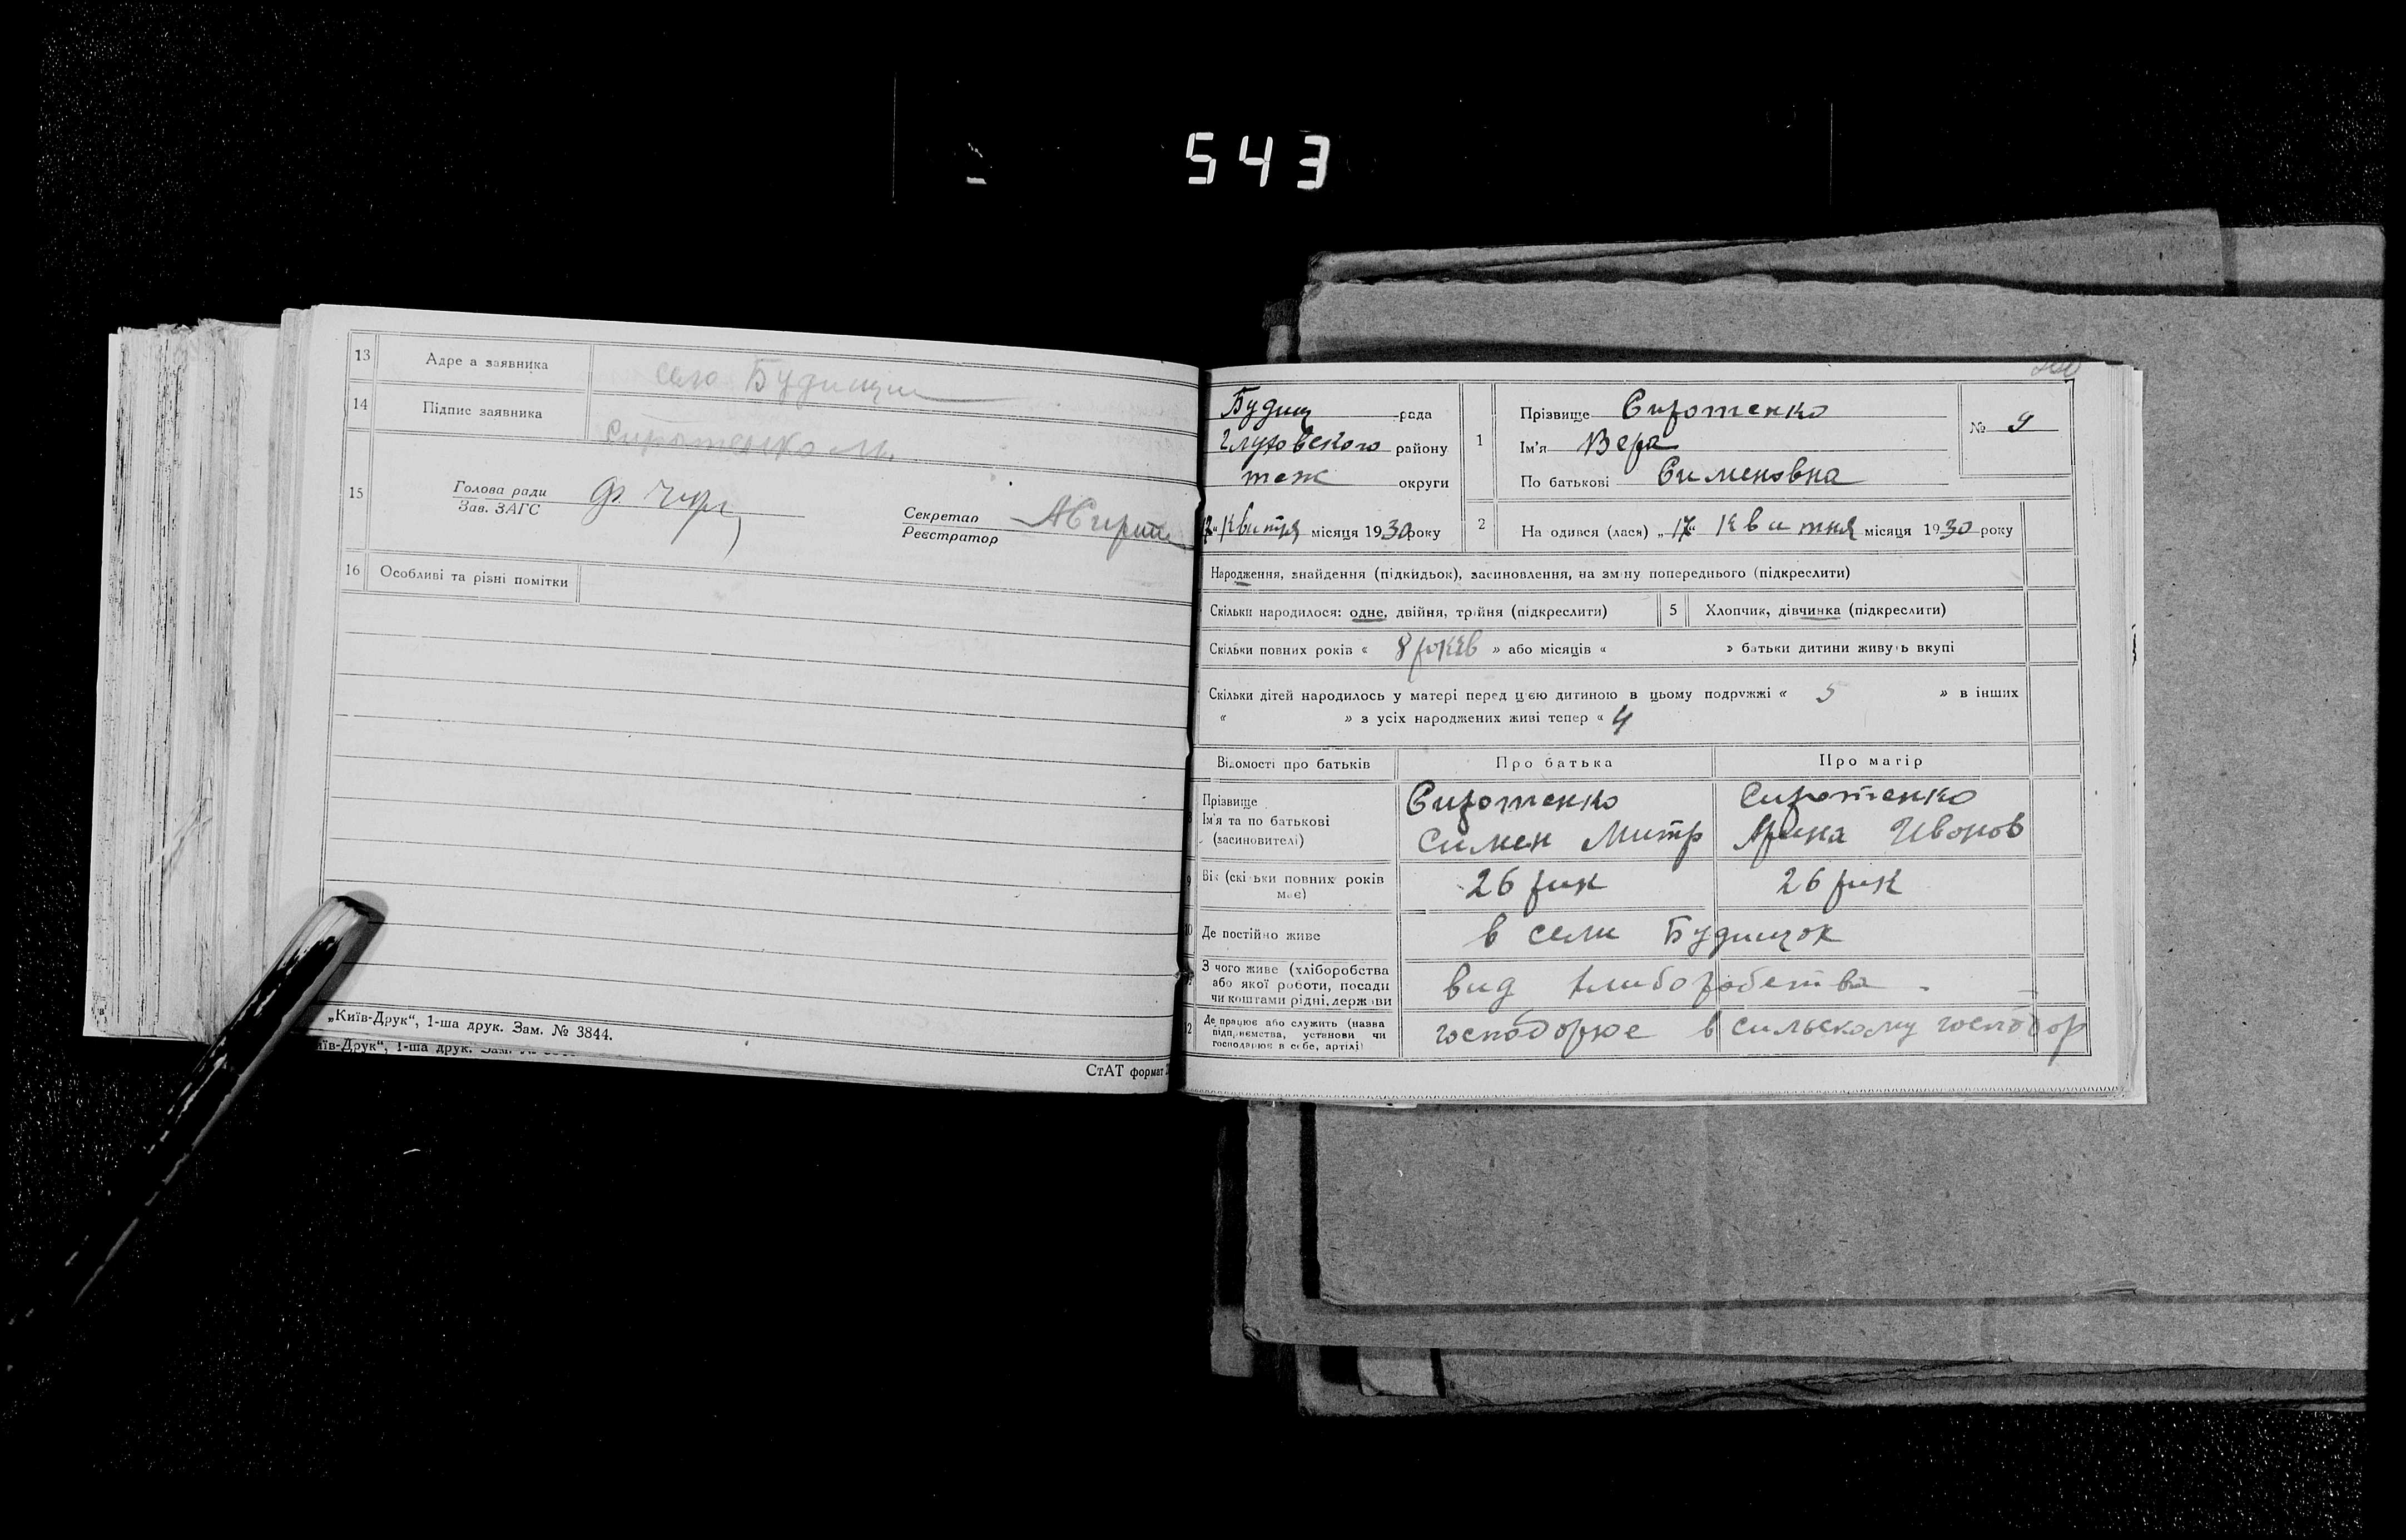 543
13 Адре а заявника село Будищи
14 Підпис заявника Сиротенко М.
15 Голова ради
Зав. ЗАГС
Секретар
Реєстратор
16 Особливі та різні помітки
„Київ-Друк“, 1-ша друк. Зам. № 3844.
иїв-Друк“, 1-ша друк.
СтАТ формат
Будищ рада
Глуховского району
теж округи
Квитня місяця 1930 року
1 Прізвище Сиротенко
Ім'я Вера
По батькові Сименовна
№ 9
2 На одився (лася) „17“ Квитня місяця 1930 року
Народження, знайдення (підкидьок), засиновлення, на зм ну попереднього (підкреслити)
Скільки народилося: одне, двійня, трійня (підкреслити) 5 Хлопчик, дівчинка (підкреслити)
Скільки повних років « 8 рокив » або місяців « » батьки дитини живуть вкупі
Скільки дітей народилось у матері перед цією дитиною в цьому подружжі « 5 » в інших
« » з усіх народжених живі тепер « 4
Відомості про батьків Про батька Про матір
Прізвище Сиротенко Сиротенко
Ім'я та по батькові Симен Митр Арина Иванов
(засиновителі)
9 Вік (скі ьки повних років 26 рик 26 рик
має)
10 Де постійно живе в сели Будищок
З чого живе (хліборобства вид хлиборобства
або якої роботи, посади
чи коштами рідні, держ ви
12 Де працює або служить (назва господорює в сильскому господор
підп, иємства, установи чи
господарює в себе, артілі)